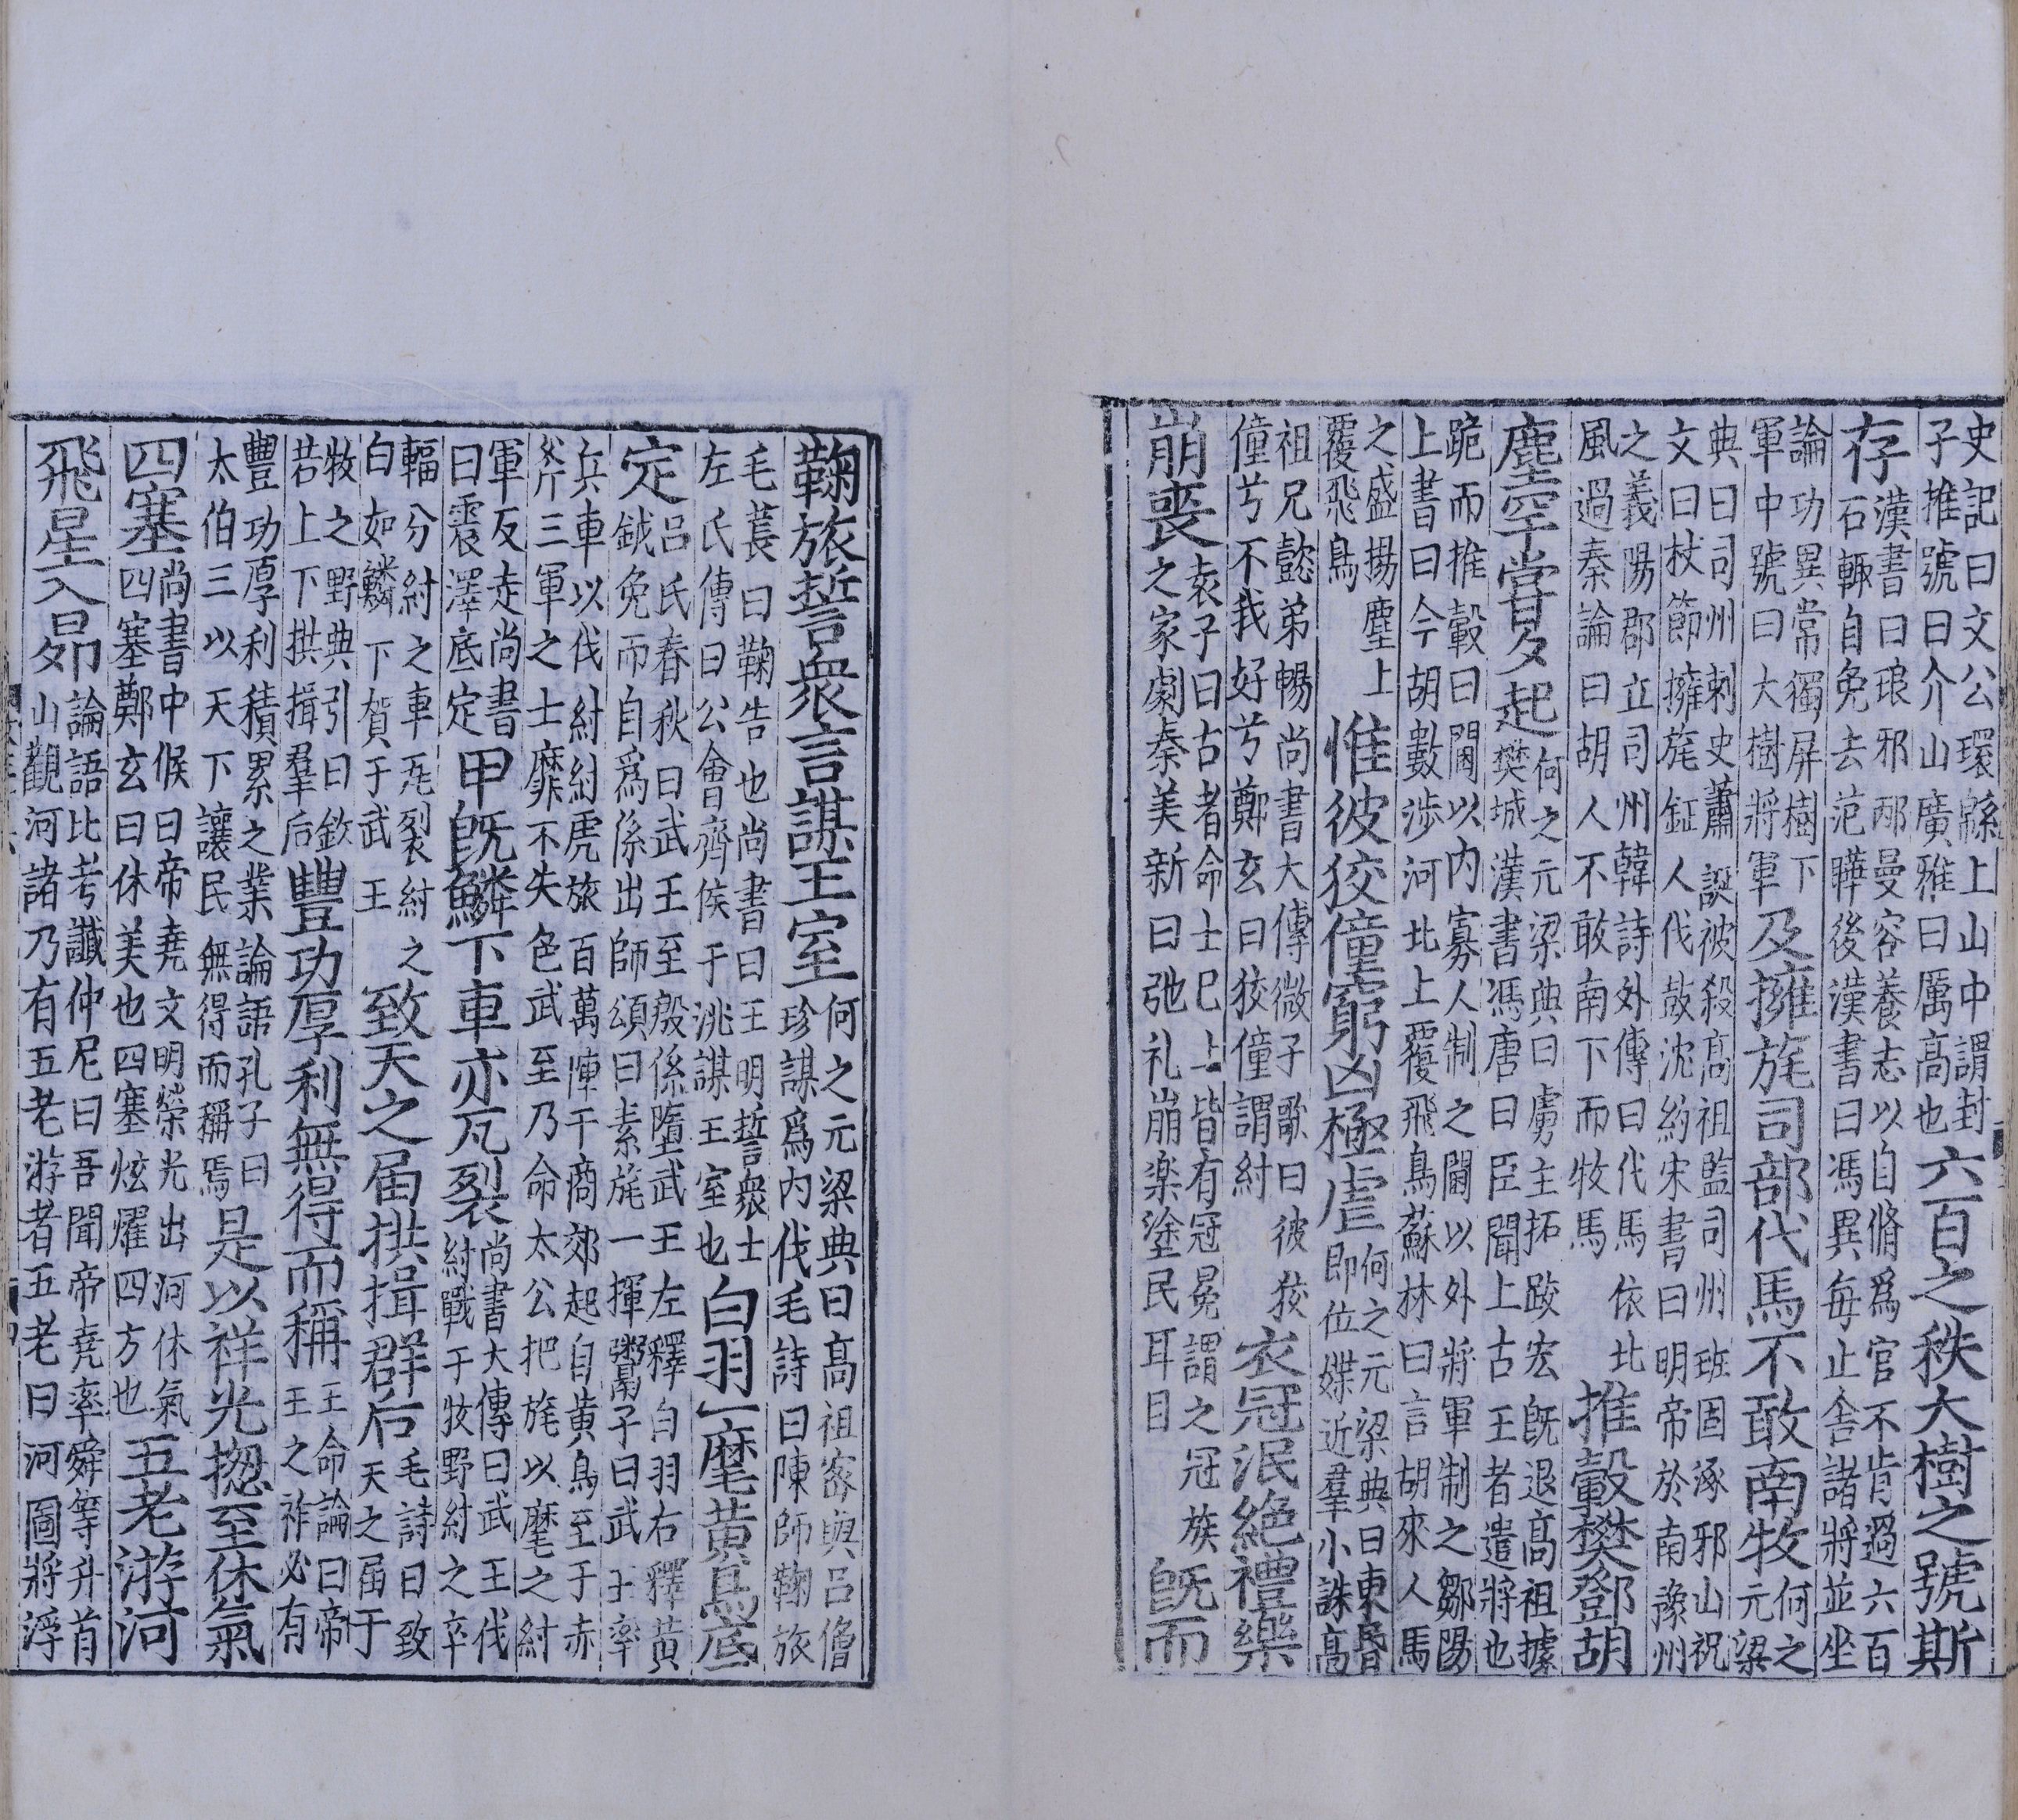 史記曰文公環緜上山中謂封
子推號曰介山廣雅曰厲高也六百之秩大樹之號斯
存漢書曰琅邪邴曼容養志以自脩爲官不肯過六百
石輙自免去范曄後漢書曰馮異每止舍諸將並坐
論功異常獨屏樹下
軍中號曰大樹將軍及擁旄司部代馬不敢南牧何之
元梁
典曰司州刺史蕭誕被殺高祖監司州班固涿邪山祝
文曰杖節擁旄鉦人伐鼓沈約宋書曰明帝於南豫州
之義陽郡立司州韓詩外傳曰代馬依北
風過秦論曰胡人不敢南下而牧馬推轂樊鄧胡
塵罕嘗夕起何之元梁典曰虜主拓跋宏既退高祖據
樊城漢書馮唐曰臣聞上古王者遣將也
跪而推轂曰閫以內寡人制之閫以外將軍制之鄒陽
上書曰今胡數涉河北上覆飛鳥蘇林曰言胡來人馬
之盛揚塵上
覆飛鳥惟彼狡僮窮凶極虐何之元梁典曰東昏
即位媟近羣小誅高
祖兄懿弟暢尚書大傳微子歌曰彼狡
僮兮不我好兮鄭玄曰狡僮謂紂衣冠泯絕禮樂
崩喪袁子曰古者命士已上皆有冠冕謂之冠族
之家劇秦美新曰弛礼崩楽塗民耳目既而
鞠旅誓衆言謀王室何之元梁典曰高祖密與呂僧
珍謀爲內伐毛詩曰陳師鞠旅
毛萇曰鞠告也尚書曰王明誓衆士
左氏傳曰公會齊侯于洮謀王室也白羽一麾黃鳥底
定呂氏春秋曰武王至殷係墮武王左釋白羽右釋黃
鉞免而自爲係出師頌曰素旄一揮鬻子曰武王率
兵車以伐紂紂虎旅百萬陣于商郊起自黃鳥至于赤
斧三軍之士靡不失色武王乃命太公把旄以麾之紂
軍反走尚書
曰震澤底定甲旣鱗下車亦瓦裂尚書大傳曰武王伐
紂戰于牧野紂之卒
輻分紂之車瓦裂紂之
白如鱗下賀于武王致天之届拱揖群后毛詩曰致
天之屆于
牧之野典引曰欽
若上下拱揖羣后豐功厚利無得而稱王命論曰帝
王之祚必有
豐功厚利積累之業論語孔子曰
太伯三以天下讓民無得而稱焉是以祥光揔至休氣
四塞尚書中候曰帝堯文明榮光出河休氣
四塞鄭玄曰休美也四塞炫燿四方也五老游河
飛星入昴論語比考讖仲尼曰吾聞帝堯率舜等升首
山觀河諸乃有五老游者五老曰河圖將浮